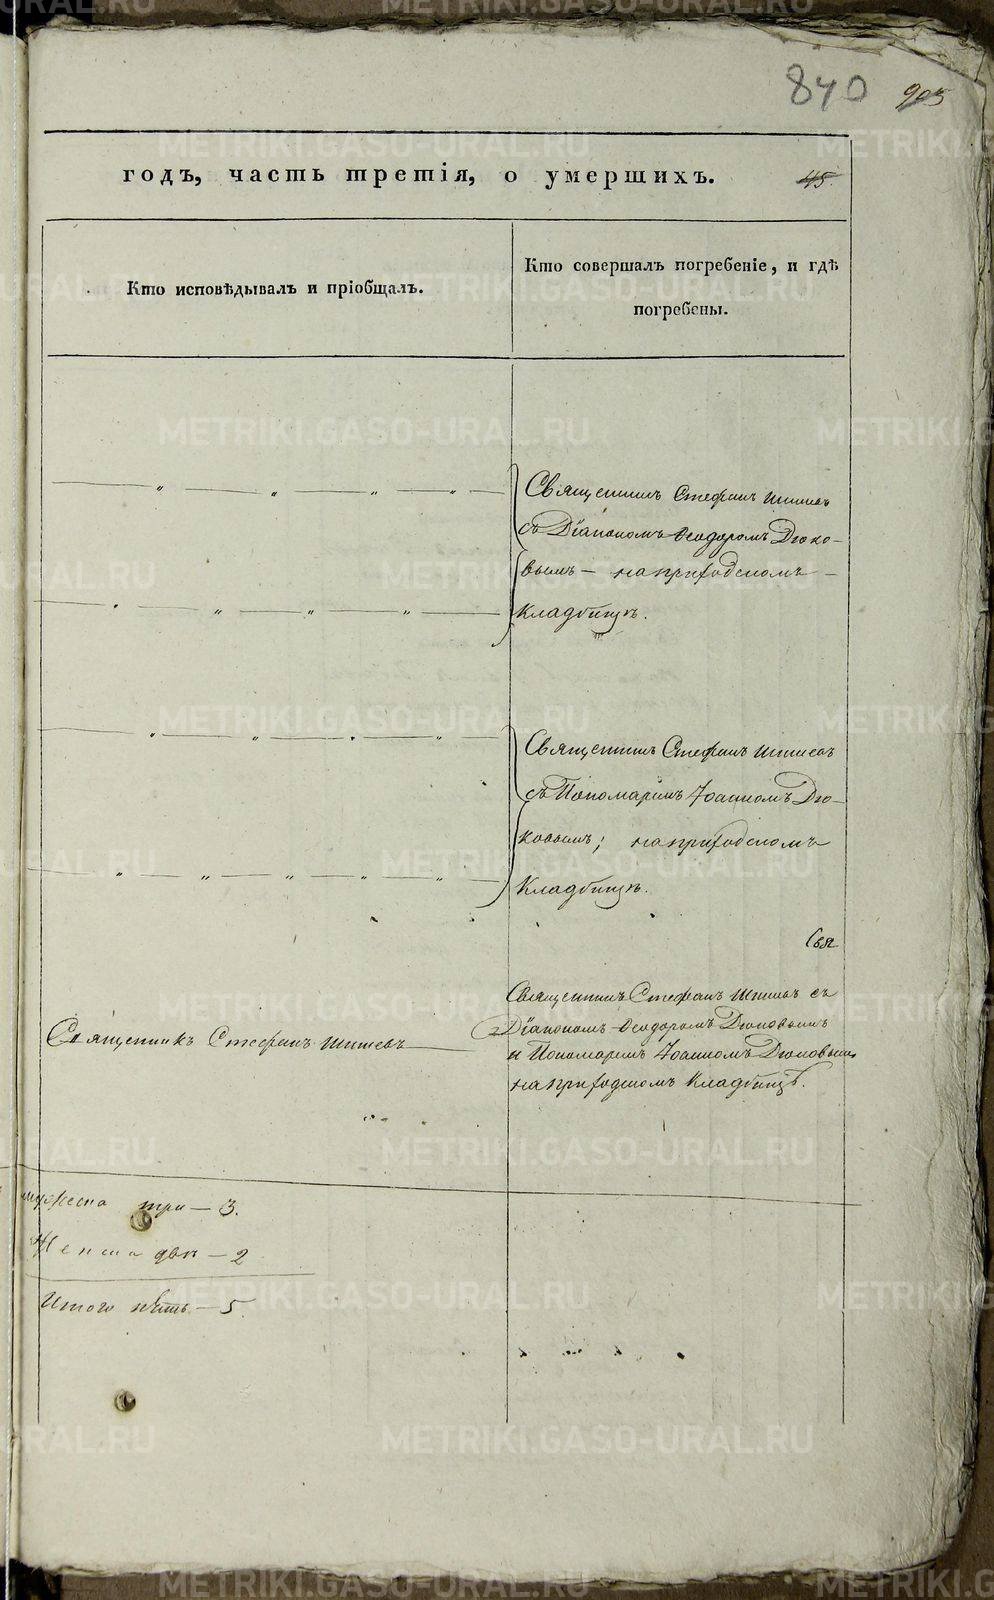 840 905
годъ, часть третія, о умершихъ. 45.
Кто исповѣдывалъ и пріобщалъ.
Кто совершалъ погребеніе, и гдѣ
погребены.
Священникъ Стефанъ
съ Діакономъ Ѳеодоромъ Дюко-
вымъ — на приходскомъ —
кладбищѣ.
Священникъ Стефанъ
съ Пономаремъ Іоанномъ Дю-
ковымъ; на приходскомъ
Кладбищѣ.
Свя
Священникъ Стефанъ съ
Діакономъ Ѳеодоромъ Дюковымъ
и Пономаремъ Іоанномъ Дюковымъ
на приходскомъ кладбищѣ.
Священникъ Стефанъ
мужеска три — 3.
Женска двѣ — 2
Итого пять — 5.
METRIKI.GASO-URAL.RU